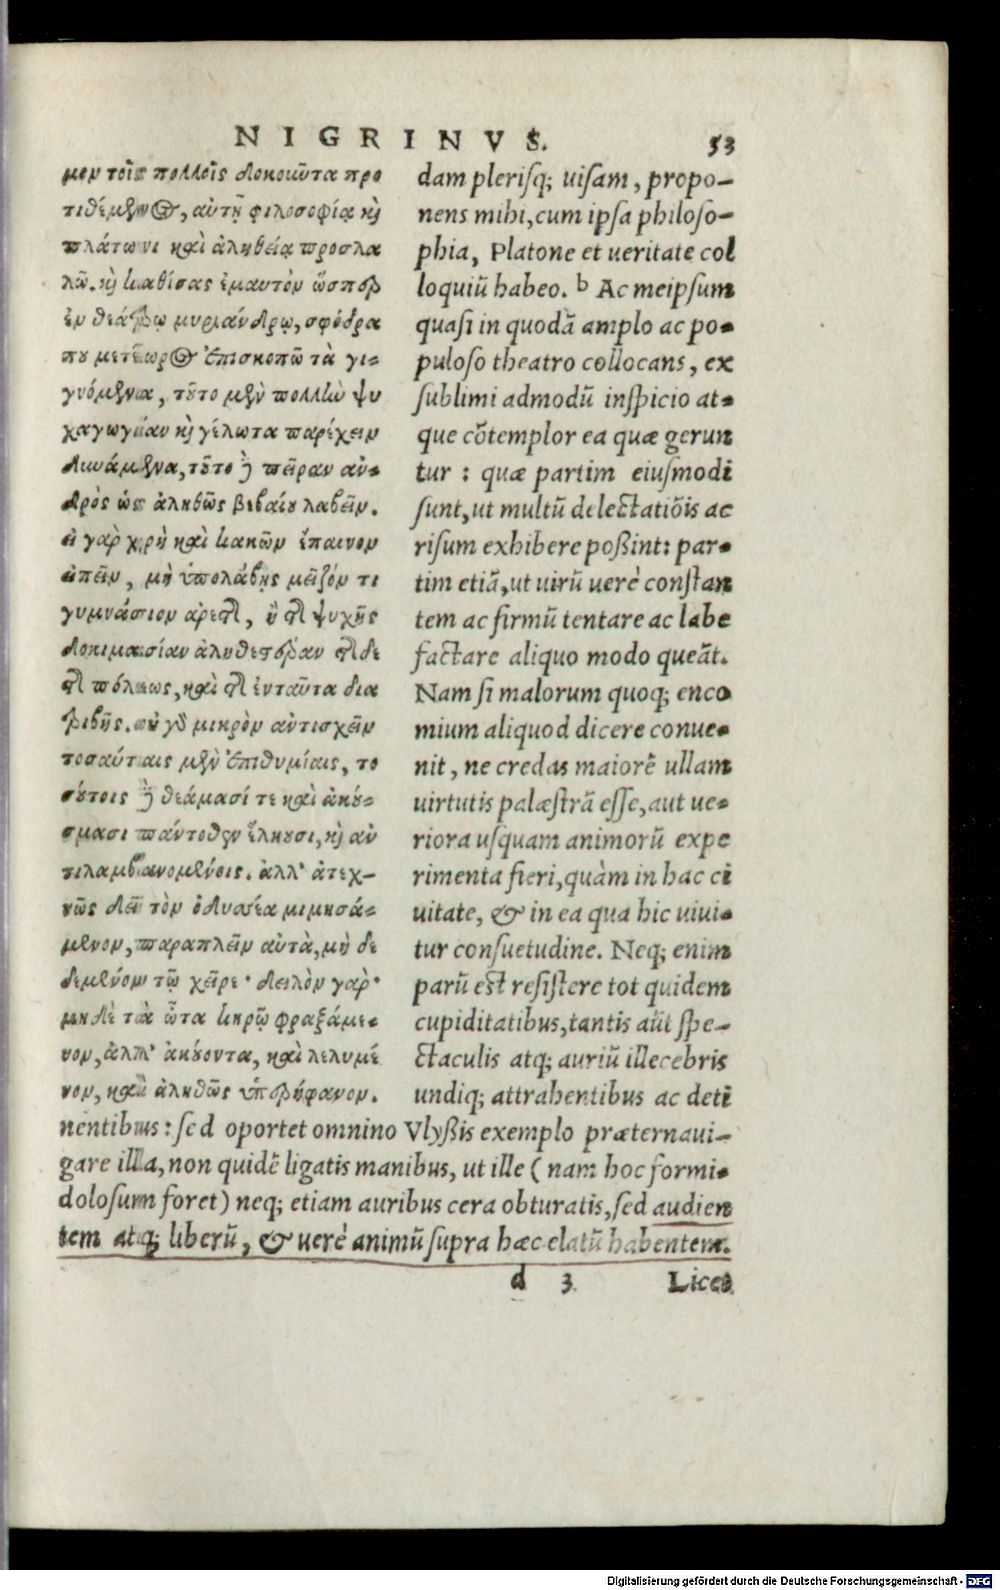 NIGRINVS. 53
μον τοῖς πολλοῖς δοκοιῶντα προ
τιθέμενος, αὐτῇ φιλοσοφίᾳ καὶ
πλάτωνι καὶ ἀληθείᾳ προσλα
λῶ. καὶ καθίσας ἐμαυτὸν ὥσπερ
ἐν θεάτρῳ μυριάνδρῳ, σφόδρα
που μετέωρος ἐπισκοπῶ τὰ γι-
γνόμενα, τοῦτο μὲν πολλὴν ψυ
χαγωγίαν καὶ γέλωτα παρέχειν
δυνάμενα, τοῦτο δὲ πεῖραν ἀν-
δρὸς ὡς ἀληθῶς βεβαίου λαβεῖν.
εἰ γὰρ χρὴ καὶ κακῶν ἔπαινον
εἰπεῖν, μὴ ὑπολάβῃς μεῖζόν τι
γυμνάσιον ἀρετῆς, ἢ τῆς ψυχῆς
δοκιμασίαν ἀληθεστέραν τῆσδε
τῆς πόλεως, καὶ τῆς ἐνταῦτα δια
τριβῆς. οὐ γὰρ μικρὸν ἀντισχεῖν
τοσαύταις μὲν ἐπιθυμίαις, το
σούτοις δὲ θεάμασί τε καὶ ἀκού-
σμασι πάντοθεν ἕλκουσι, καὶ ἀν
τιλαμβανομένοις. ἀλλ' ἀτεχ-
νῶς δεῖ τὸν ὀδυσσέα μιμησά-
μενον, παραπλεῖν αὐτὰ, μὴ δε
δεμένον τῶ χεῖρε· δειλὸν γάρ·
μηδὲ τὰ ὦτα κηρῷ φραξάμε-
νον, ἀλλ' ἀκούοντα, καὶ λελυμέ
νον, καὶ ἀληθῶς ὑπερήφανον.
dam plerisq; uisam, propo-
nens mihi, cum ipsa philoso-
phia, Platone et ueritate col
loquiũ habeo. b Ac meipsum
quasi in quodã amplo ac po-
puloso theatro collocans, ex
sublimi admodũ inspicio at-
que cõtemplor ea quæ gerun
tur : quæ partim eiusmodi
sunt, ut multũ delectatiõis ac
risum exhibere poßint: par-
tim etiã, ut uirũ uerè constan
tem ac firmũ tentare ac labe
factare aliquo modo queãt.
Nam si malorum quoq; enco
mium aliquod dicere conue-
nit, ne credas maiorẽ ullam
uirtutis palæstrã esse, aut ue-
riora usquam animorũ expe
rimenta fieri, quàm in hac ci
uitate, & in ea qua hic uiui-
tur consuetudine. Neq; enim
parũ est resistere tot quidem
cupiditatibus, tantis aũt spe-
ctaculis atq; auriũ illecebris
undiq; attrahentibus ac deti
nentibus : sed oportet omnino Vlyßis exemplo præternaui-
gare illa, non quidẽ ligatis manibus, ut ille ( nam hoc formi-
dolosum foret) neq; etiam auribus cera obturatis, sed audien
tem atq; liberũ, & uerè animũ supra hæc elatũ habentem.
d 3. Licet
Digitalisierung gefördert durch die Deutsche Forschungsgemeinschaft - DFG